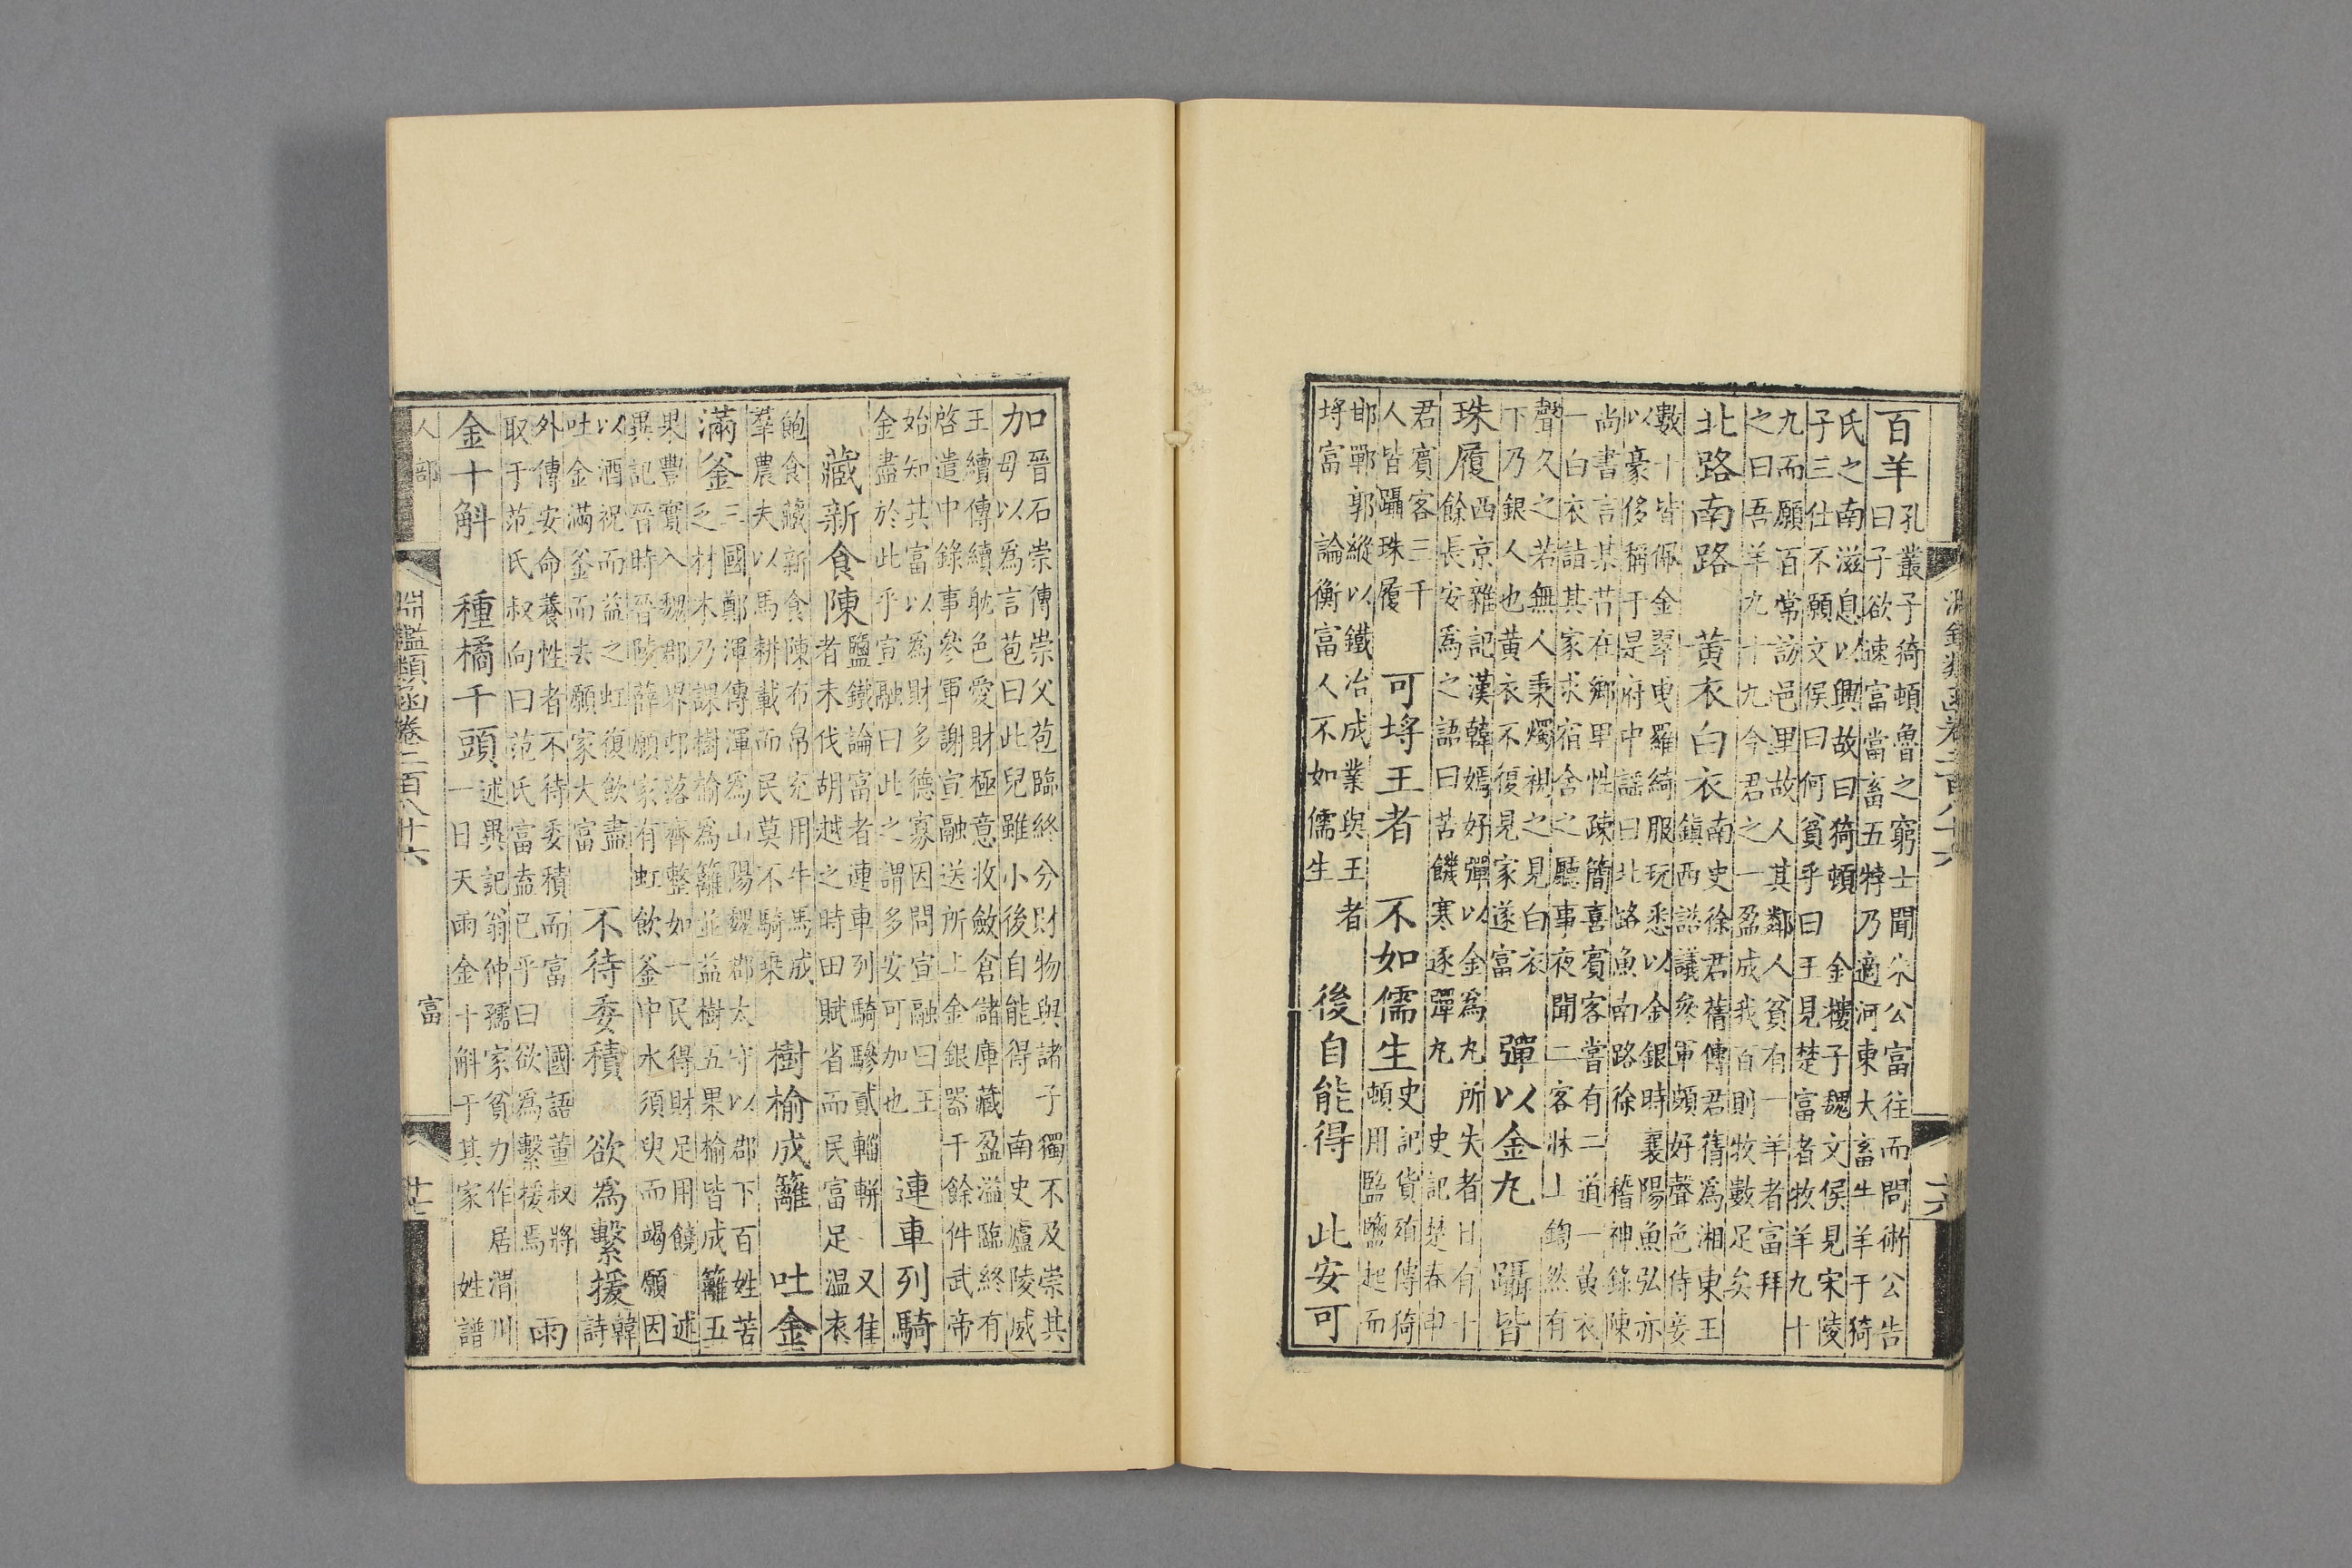 百羊
孔叢子猗頓魯之窮士聞朱公富往而問術公告
曰子欲速富當畜五牸乃適河東大畜牛羊于猗
氏之南滋息以興故曰猗頓 金樓子魏文侯見宋陵
子三仕不願文侯曰何貧乎曰王見楚富者牧羊九十
九而願百常訪邑里故人其鄰人貧有一羊者富拜
之曰吾羊九十九今君之一盈成我百則牧數足矣
北路南路 黃衣白衣
南史徐君蒨傳君蒨為湘東王
鎮西諮議參軍頗好聲色侍妾
數十皆佩金翠曳羅綺服玩悉以金銀時襄陽魚弘亦
以豪侈稱于是府中謠曰北路魚南路徐 稽神錄陳
尚書言某苦在鄉里性疎簡喜賓客嘗有二道一黃衣
一白衣詣其家求宿舍之聽事夜聞二客牀上鍧然有
聲久之若無人秉燭視之見白衣
下乃銀人也黃衣不復見家遂富
彈以金丸 躡皆
珠履
西京雜記漢韓嫣好彈以金為丸所失者日有十
餘長安為之語曰苦饑寒逐彈丸 史記楚春申
君賓客三千
人皆躡珠履
可埒王者 不如儒生
史記貨殖傳猗
頓用盬鹽起而
邯鄲郭縱以鐵冶成業與王者
埒富 論衡富人不如儒生
後自能得 此安可
加
晉石崇傳崇父苞臨終分財物與諸子獨不及崇其
母以為言苞曰此兒雖小後自能得 南史廬陵威
王續傳續耽色愛財極意收斂倉儲庫藏盈溢臨終有
啓遣中錄事參軍謝宣融送所上金銀器千餘件武帝
始知其富以為財多德寡因問宣融曰王
金盡於此乎宣融曰此之謂多安可加也
連車列騎
藏新食陳
鹽鐵論富者連車列騎驂貳輜軿 又往
者未伐胡越之時田賦省而民富足溫衣
飽食藏新食陳布帛充用牛馬成
羣農夫以馬耕載而民莫不騎乘
樹榆成籬 吐金
滿釜
三國鄭渾傳渾為山陽魏郡太守以郡下百姓苦
乏材木乃課樹榆為籬並益樹五果榆皆成籬五
果豐實入魏郡界邨落齊整如一民得財足用饒 述
異記晉時晉陵薛願家有虹飲釜中水須臾而竭願因
以酒祝而益之虹復飲盡
吐金滿釜而去願家大富
不待委積 欲為繫援
韓
詩
外傳安命養性者不待委積而富 國語董叔將
取于范氏叔向曰范氏富盍已乎曰欲為繫援焉
雨
金十斛 種橘千頭
述異記翁仲孺家貧力作居渭川
一日天雨金十斛于其家 姓譜
人部
淵鑑類函卷二百八十六
富